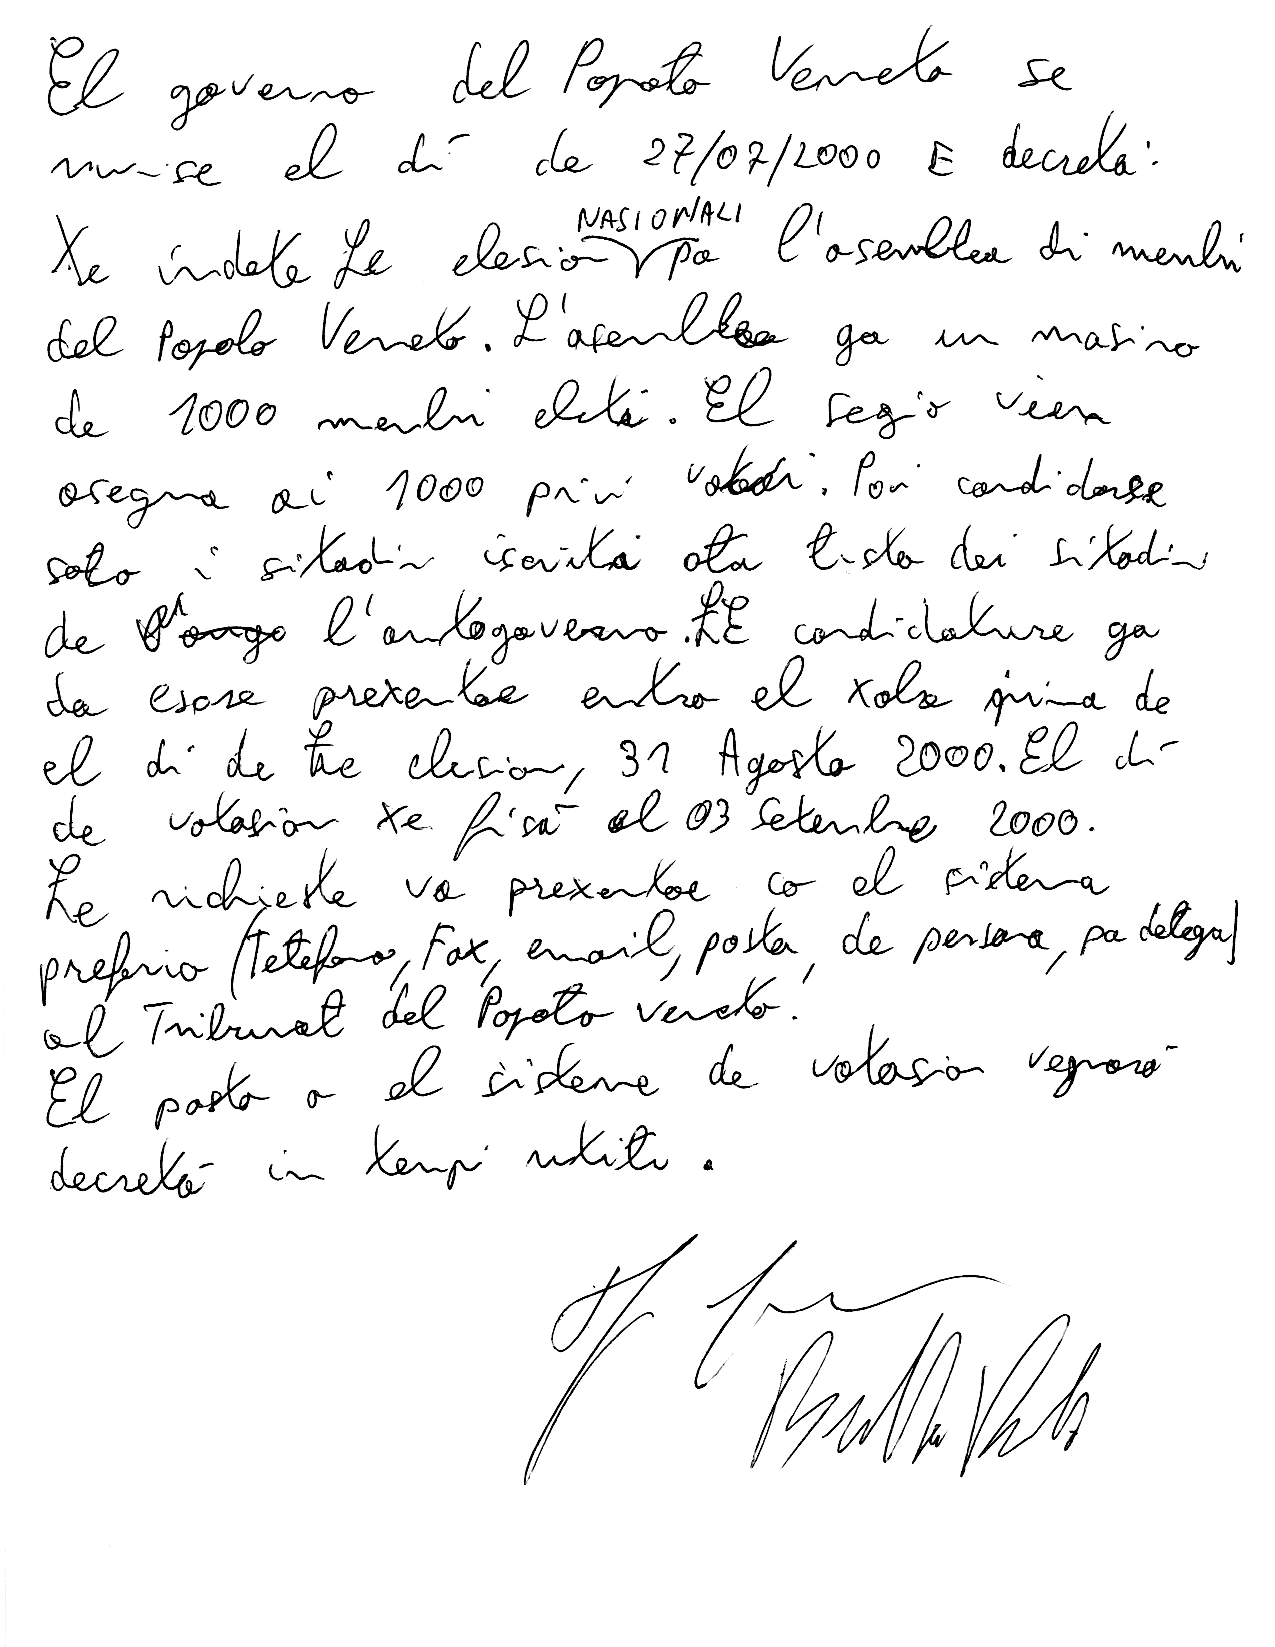 El governo del Popoƚo Veneto se
riunise el dì de 27/07/2000 E decreta:
Xe indete Ƚe elesion NASIONALI pa l'asemblea di menbri
del Popolo Veneto. L'asemblea ga un masimo
de 1000 menbri eleti. El segio vien
asegnà ai 1000 primi votati. Poi candidarse
soƚo i sitadin iscriti aƚa lista dei sitadin
de l'autogoverno. ȽE candidature ga
da essre prexentae entro el xole prima de
el dì de ƚe elesion, 31 Agosto 2000. El dì
de votasion xe fisà al 03 Setenbre 2000.
Ƚe richieste va prexentae co el sistema
preferio (Teƚefono, Fax, email, posta, de persona, pa deƚega)
al Tribunaƚ del Popoƚo veneto.
El posto o el sistema de votasion vegnarà
decretà in tenpi utiƚi.